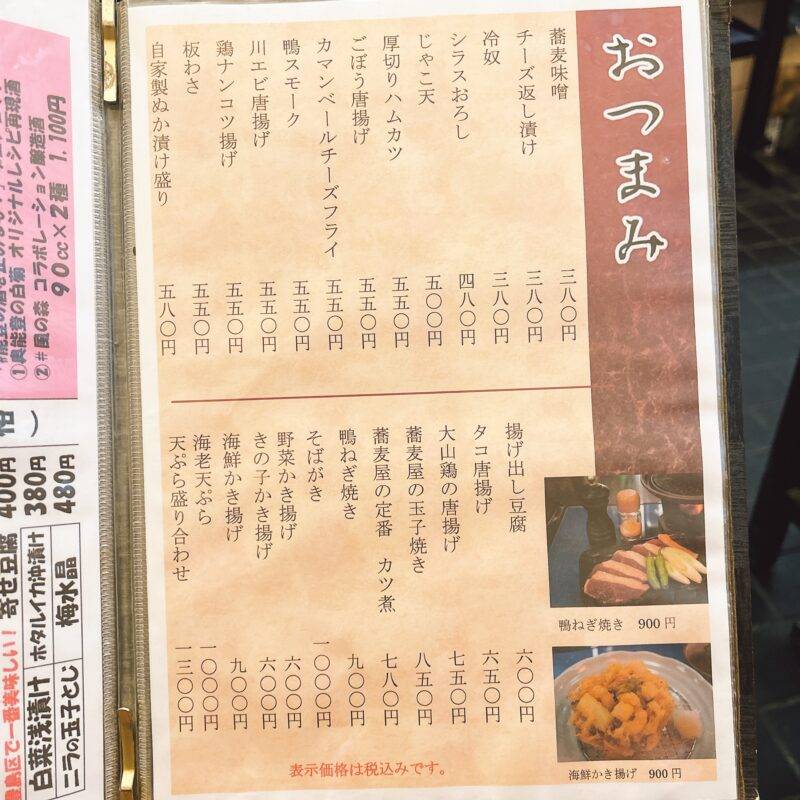 おつまみ
蕎麦味噌 三八〇円
チーズ返し漬け 三八〇円
冷奴 三八〇円
シラスおろし 四八〇円
じゃこ天 五〇〇円
厚切りハムカツ 五五〇円
ごぼう唐揚げ 五五〇円
カマンベールチーズフライ 五五〇円
鴨スモーク 五五〇円
川エビ唐揚げ 五五〇円
鶏ナンコツ揚げ 五五〇円
板わさ 五五〇円
自家製ぬか漬け盛り 五八〇円
揚げ出し豆腐 六〇〇円
タコ唐揚げ 六五〇円
大山鶏の唐揚げ 七五〇円
蕎麦屋の玉子焼き 八五〇円
蕎麦屋の定番 カツ煮 七八〇円
鴨ねぎ焼き 九〇〇円
そばがき 一〇〇〇円
野菜かき揚げ 六〇〇円
きの子かき揚げ 六〇〇円
海鮮かき揚げ 九〇〇円
海老天ぷら 一〇〇〇円
天ぷら盛り合わせ 一三〇〇円
鴨ねぎ焼き 900円
海鮮かき揚げ 900円
表示価格は税込みです。
①奥能登の白菊 オリジナルレシピ再現酒
②#風の森 コラボレーション醸造酒
90cc×2種 1,100円
400円
380円
480円
で一番美味しい! 寄せ豆腐
白菜浅漬け ホタルイカ沖漬け
ニラの玉子とじ 梅水晶